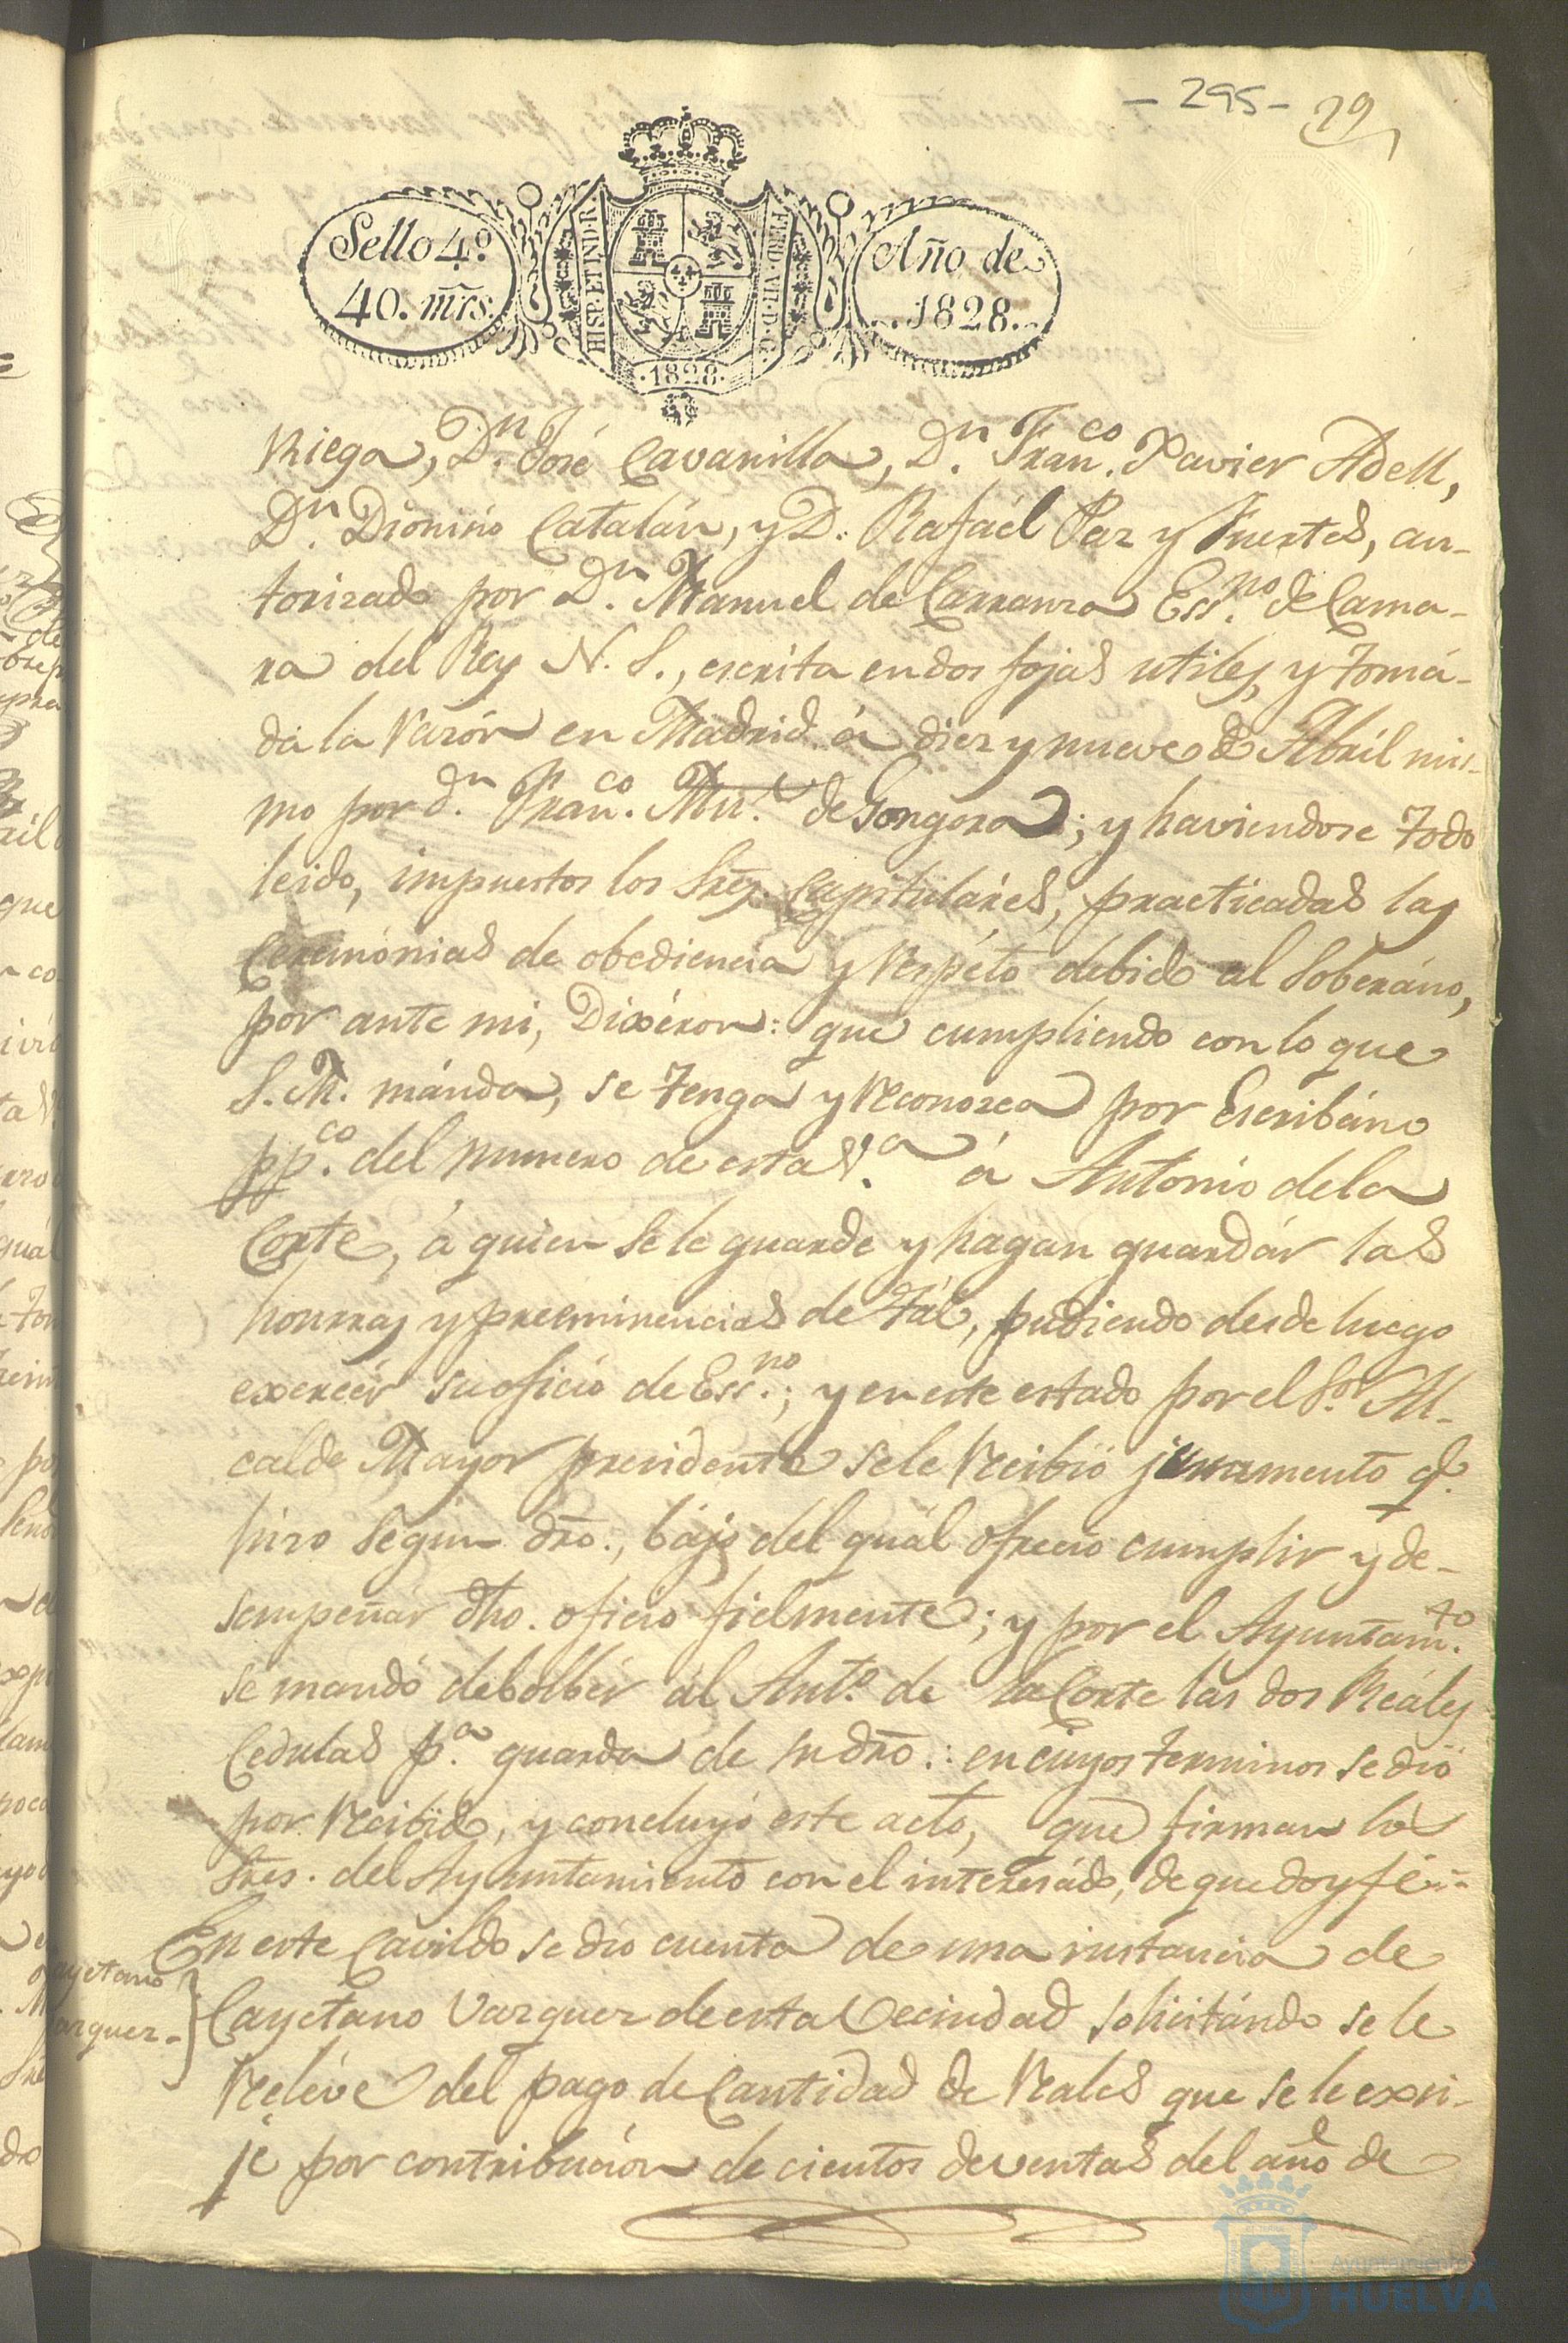 - 295 - 29
Sello 4º
40. mrs.
HISP. ET IND. R.
FERD. VII. D. G.
·1828·
Año de
1828.
Riega, Dn. José Cavanilla, Dn. Franco. Xavier Adell,
Dn. Dionisio Catalán, y D. Rafaél Paz y Fuertes, au-
torizado por Dn. Manuel de Carranza Essno. de Cama-
ra del Rey N. S., escrita en dos fojas utiles, y tomá-
da la razón en Madrid á diez y nueve de Abril mis-
mo por dn. Franco. de Gongora; y haviendose todo
leido, impuestos los Sres. Capituláres, practicadas las
Ceremónias de obediencia y respéto debido al Soberáno,
por ante mi, Dixéron: que cumpliendo con lo que
S. M. mánda, se tenga y reconozca por Escribáno
ppco. del numero de esta Va. á Antonio de la
Corte, á quien se le guarde y hagan guardár las
honrras y preeminencias de tál, pudiendo desde luego
exercér su oficio de Essno.; y en este estado por el Sor. Al-
calde Mayor presidente se le recibió juramento q.
hizo segun dro., bájo del quál ofrecio cumplir y de-
sempeñár dho. oficio fielmente; y por el Ayuntamto.
se mandó debolbér al Anto. de la Corte las dos Reáles
Cedulas pa. guarda de su dro.: en cuyos terminos se dió
por recibido, y concluyó este acto, que firman los
Sres. del Ayuntamiento con el interesádo, de que doy fé.=
En este Cavildo se dio cuenta de una instancia de
Cayetano
Vazquez.
Cayetano Vazquez de esta Vecindad solicitándo se le
reléve del pago de Cantidad de reales que se le exri-
je por contribución de cientos de ventas del año de
Ayuntamiento de
HUELVA